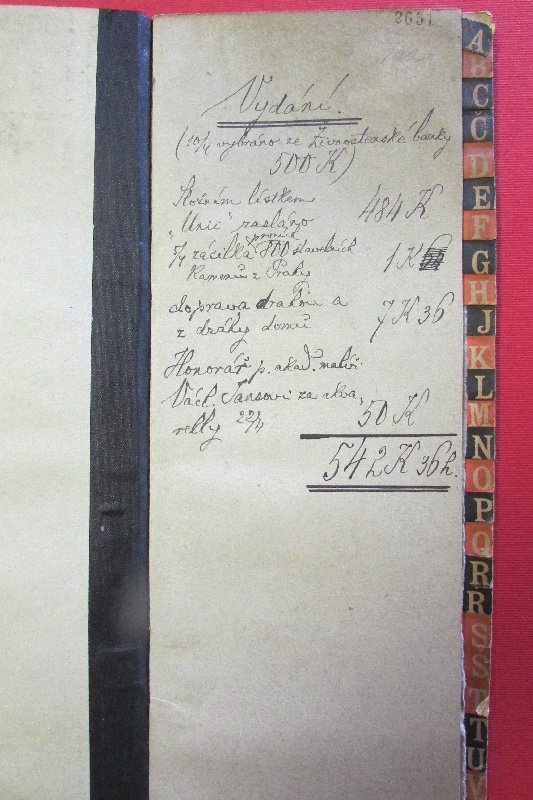 2651
Vydání.
(10/4 vybráno ze Živnostenské banky
500 K)
Složním lístkem
"Unii" zasláno 484 K
5/4 zásilka prvních 100 stavebních
kamenů z Prahy 1 K
doprava drahou a
z dráhy domů 7 K 36
Honorář p. akad. malíři
Václ. Jansovi za akva
relly 22/4 50 K
542 K 36 h.
A
B
C
Č
D
E
F
G
H
J
K
L
M
N
O
P
Q
R
Ř
S
Š
T
T
U
V